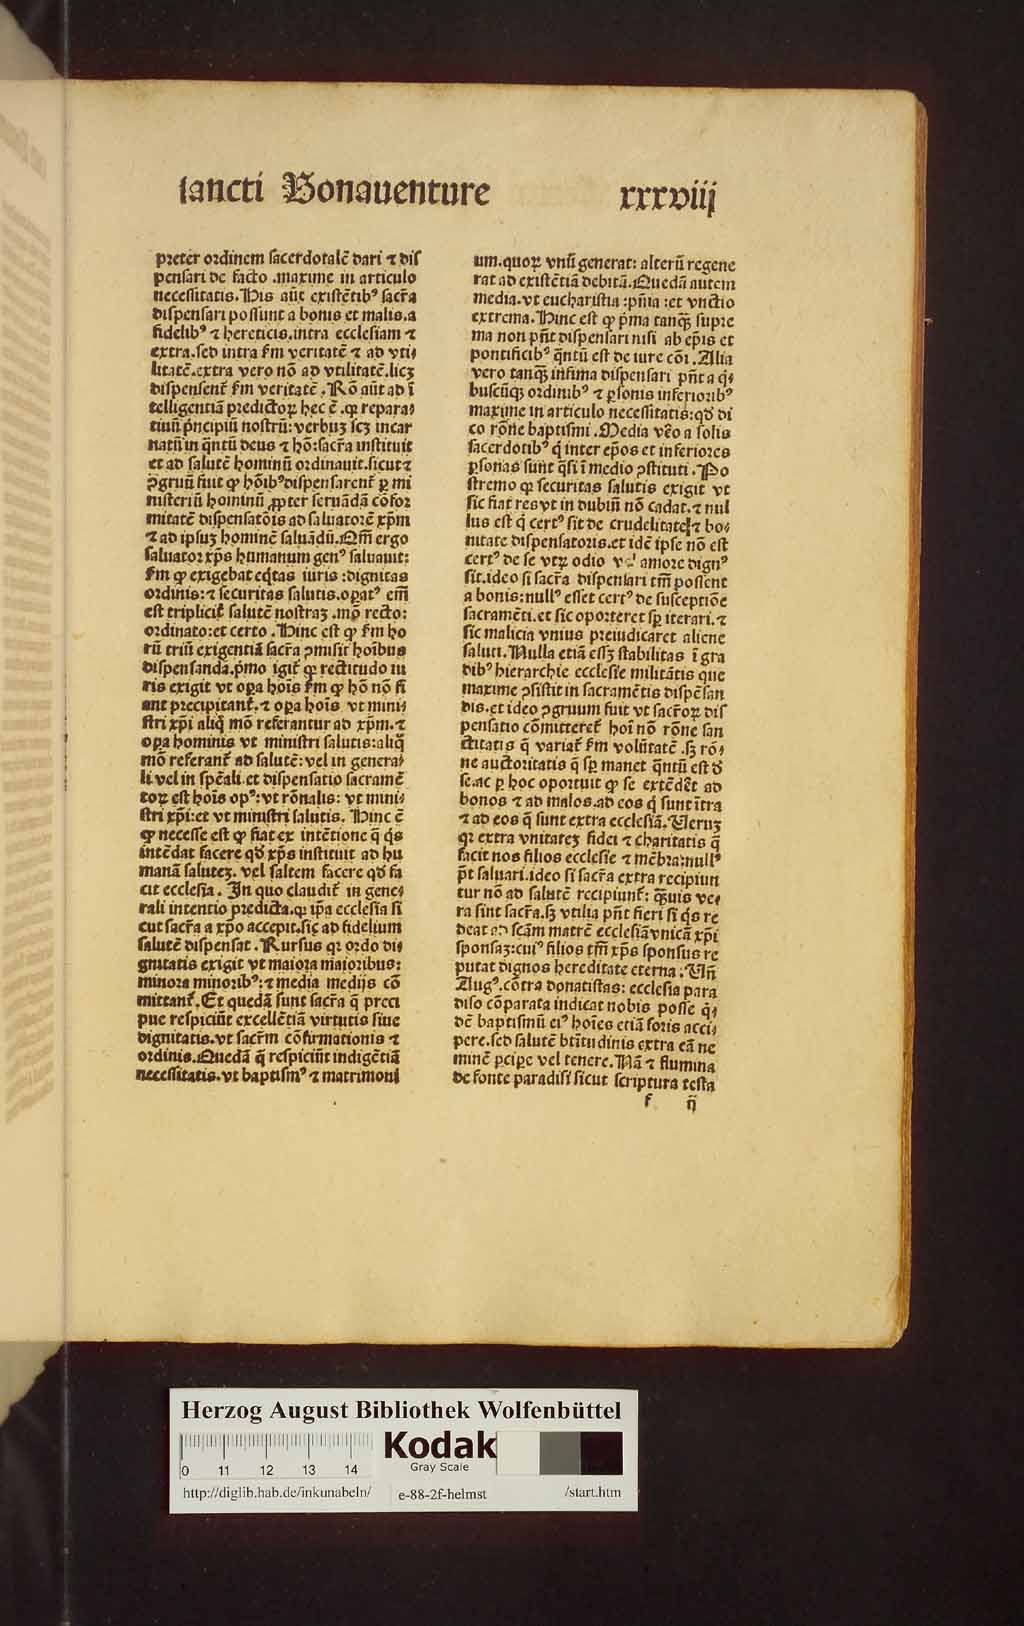 sancti Bonauenture xxxviij
preter ordinem sacerdotalē dari ⁊ dis
pensari de facto .maxime in articulo
necessitatis. His aūt existētibꝰ sacr̄a
dispensari possunt a bonis et malis. a
fidelibꝰ ⁊ hereticis. intra ecclesiam ⁊
extra. sed intra ẜm veritatē ⁊ ad vti⸗
litatē. extra vero nō ad vtilitatē. licꝫ
dispensent̉ ẜm veritatē. Rō aūt ad ī
telligentiā predictoꝝ hec ē. qꝛ repara⸗
tiuū pͥncipiū nostrū: verbuꝫ scꝫ incar
natū in qͣntū deus ⁊ hō: sacr̄a instituit
et ad salutē hominū ordinauit. sicut ⁊
ꝯgruū fuit ꝙ hōibꝰ dispensarent̉ ꝑ mi
nisteriū hominū ꝓpter seruādā cōfor
mitatē dispensatōis ad saluatorē xp̄m
⁊ ad ipsuꝫ hominē saluādū. Qm̄ ergo
saluator xp̄s humanum genꝰ saluauit:
ẜm ꝙ exigebat eq̄tas iuris : dignitas
ordinis: ⁊ securitas salutis. oꝑatꝰ em̄
est triplicit̉ salutē nostraꝫ .mō recto:
ordinato: et certo . Hinc est ꝙ ẜm ho
rū triū exigentiā sacr̄a ꝯmisit hoībus
dispensanda. pͥmo igit̉ qꝛ rectitudo iu
ris exigit vt oꝑa hoīs ẜm ꝙ hō nō fi
ant precipitant̉. ⁊ oꝑa hoīs vt mini⸗
stri xp̄i aliq̄ mō referantur ad xp̄m. ⁊
oꝑa hominis vt ministri salutis: aliq̄
mō referant̉ ad salutē: vel in genera⸗
li vel in spēali. et dispensatio sacramē
toꝝ est hoīs opꝰ: vt rōnalis: vt mini⸗
stri xp̄i: et vt ministri salutis. Hinc ē
ꝙ necesse est ꝙ fiat ex intētione q̄ qͥs
intēdat facere qd̄ xp̄s instituit ad hu
manā saluteꝫ. vel saltem facere qd̄ fa
cit ecclesia. In quo claudit̉ in gene⸗
rali intentio predicta. qꝛ ip̄a ecclesia si
cut sacr̄a a xp̄o accepit. sic ad fidelium
salutē dispensat. Rursus qꝛ ordo di⸗
gnitatis exigit vt maiora maioribus:
minora minoribꝰ: ⁊ media medijs cō
mittant̉. Et quedā sunt sacr̄a q̄ preci
pue respiciūt excellētiā virtutis siue
dignitatis. vt sacr̄m cōfirmationis ⁊
ordinis. Quedā q̄ respiciūt indigētiā
necessitatis. vt baptismꝰ ⁊ matrimoni
um. quoꝝ vnū generat: alterū regene
rat ad existētiā debitā. Quedā autem
media. vt eucharistia : pn̄ia : et vnctio
extrema. Hinc est ꝙ pͥma tanqͣꝫ supre
ma non pn̄t dispensari nisi ab ep̄is et
pontificibꝰ qͣntū est de iure cōi. Alia
vero tanqͣꝫ infima dispensari pn̄t a qͥ⸗
buscūqꝫ ordinibꝰ ⁊ ꝑsonis inferioribꝰ
maxime in articulo necessitatis: qd̄ di
co rōne baptismi. Media v̄o a solis
sacerdotibꝰ qͥ inter ep̄os et inferiores
ꝑsonas sunt qͣsi ī medio ꝯstituti. Po
stremo qꝛ securitas salutis exigit vt
sic fiat res vt in dubiū nō cadat. ⁊ nul
lus est qͥ certꝰ sit de crudelitate ⁊ bo⸗
nitate dispensatoris. et idē ipse nō est
certꝰ de se vtꝝ odio vel amore dignꝰ
sit. ideo si sacr̄a dispensari tm̄ possent
a bonis: nullꝰ esset certꝰ de susceptiōe
sacramēti. et sic oporteret sꝑ iterari. ⁊
sic malicia vnius preiudicaret aliene
saluti. Nulla etiā essꝫ stabilitas ī gra
dibꝰ hierarchie ecclesie militātis que
maxime ꝯsistit in sacramētis dispēsan
dis. et ideo ꝯgruum fuit vt sacr̄oꝝ dis
pensatio cōmitteret̉ hoī nō rōne san
ctitatis q̄ variat̉ ẜm volūtatē. sꝫ rō⸗
ne auctoritatis q̄ sꝑ manet qͣntū est d̄
se. ac ꝑ hoc oportuit ꝙ se extēdēt ad
bonos ⁊ ad malos. ad eos qͥ sunt ītra
⁊ ad eos q̄ sunt extra ecclesiā. Veruꝫ
qꝛ extra vnitateꝫ fidei ⁊ charitatis q̄
facit nos filios ecclesie ⁊ mēbra: nullꝰ
pt̄ saluari. ideo si sacr̄a extra recipiun
tur nō ad salutē recipiunt̉: qͣꝫuis ve⸗
ra sint sacr̄a. sꝫ vtilia pn̄t fieri si qͥs re
deat ad scām matrē ecclesiā vnicā xp̄i
sponsaꝫ: cuiꝰ filios tm̄ xp̄s sponsus re
putat dignos hereditate eterna. Vn̄
Augꝰ. cōtra donatistas: ecclesia para
diso cōparata indicat nobis posse qͥ⸗
dē baptismū eiꝰ hoīes etiā foris acci⸗
pere. sed salutē bt̄itudinis extra eā ne
minē ꝑciꝑe vel tenere. Nā ⁊ flumina
de fonte paradisi sicut scriptura testa
f ij
Herzog August Bibliothek Wolfenbüttel
Kodak
Gray Scale
0 11 12 13 14
http://diglib.hab.de/inkunabeln/ e-88-2f-helmst /start.htm